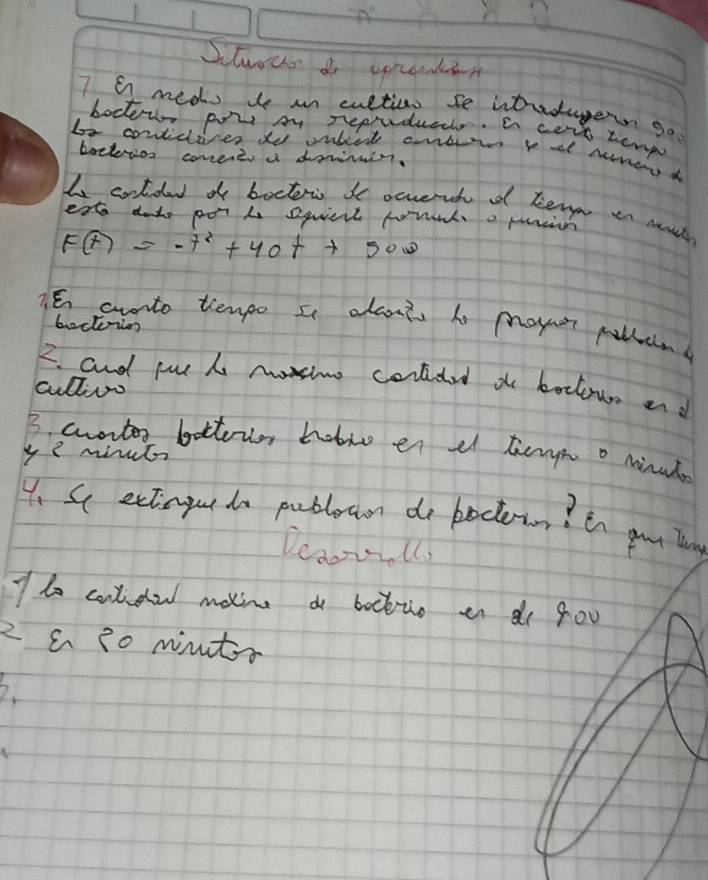 Situación de aprendizaje
1 En medio de un cultivo se introdugeron 900
bacterias para su reproducción. En cierto tiempo
las condiciones del ambiente cambiaron y el numero de
bacterias comenzo a disminuir.
la cantidad de bacteria de acuerdo al tiempo en minutos
esta dado por la siguiente formula o funcion
F(t) = -t² + 40t + 500
1. En cuanto tiempo se alcanzo la mayor poblacion de
bacterias
2. cual fue la maxima cantidad de bacterias en el
cultivo
3. cuantas bacterias habia en el tiempo 0 minutos
y 2 minutos
4. Se extingue la poblacion de bacterias? En que tiempo
Desarrollo
1 la cantidad maxima de bacteria es de 900
2 En 20 minutos
3.